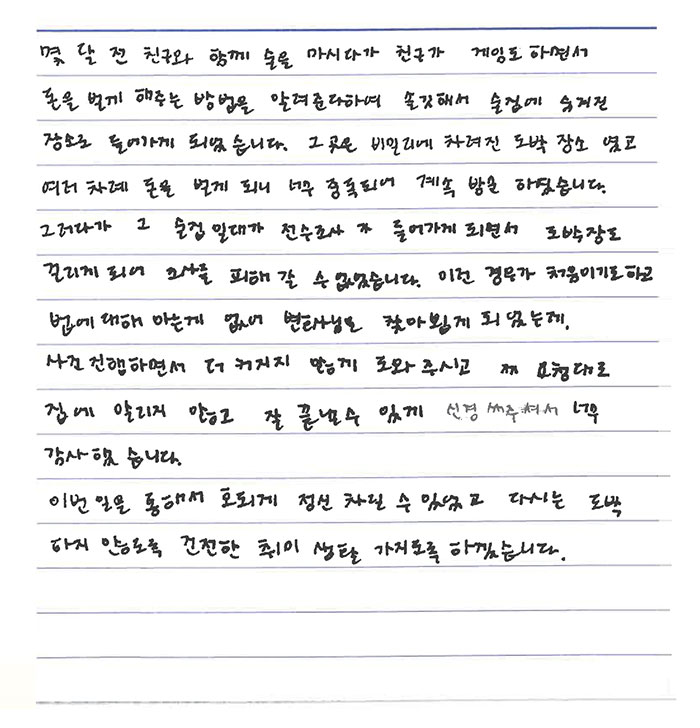 몇 달 전 친구와 함께 술을 마시다가 친구가 게임도 하면서
돈을 벌게 해주는 방법을 알려준다하여 솔깃해서 술집에 숨겨진
장소로 들어가게 되었습니다. 그곳은 비밀리에 차려진 도박 장소 였고
여러 차례 돈을 벌게 되니 너무 중독되어 계속 방문 하였습니다.
그러다가 그 술집 일대가 전수조사 차 들어가게 되면서 도박장도
걸리게 되어 조사를 피해 갈 수 없었습니다. 이런 경우가 처음이기도하고
법에 대해 아는게 없어 변호사님을 찾아뵙게 되었는데,
사건 진행하면서 더 커지지 않게 도와 주시고 제 요청대로
집에 알리지 않고 잘 끝낼수 있게 신경 써주셔서 너무
감사했습니다.
이번 일을 통해서 호되게 정신 차릴 수 있었고 다시는 도박
하지 않도록 건전한 취미 생활 가지도록 하겠습니다.